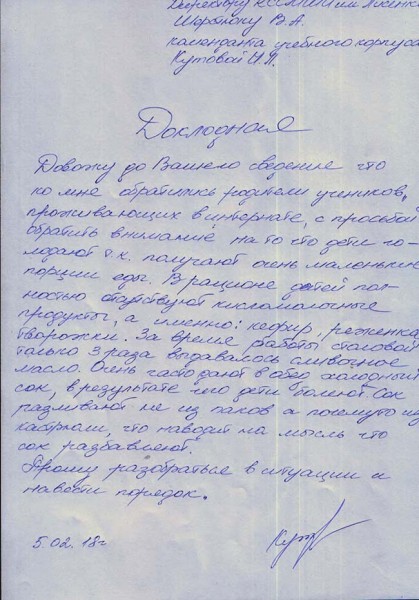 Директору КССМШИ им Лысенка
Шерстюку В.А.
коменданта учебного корпуса
Кутовой И.П.
Докладная
Довожу до Вашего сведение что
ко мне обратились родители учеников,
проживающих в интернате, с просьбой
обратить внимание на то что дети го-
лодают т.к. получают очень маленькие
порции еды. В рационе детей пол-
ностью отсутствуют кисломолочные
продукты, а именно: кефир, ряженка,
творожки. За время работы столовой
только 3 раза выдавалось сливочное
масло. Очень часто дают в обед холодный
сок, в результате чего дети болеют. Сок
разливают не из паков а почемуто из
кастрюли, что наводит на мысль что
сок разбавляют.
Прошу разобраться в ситуации и
навести порядок.
5.02.18г